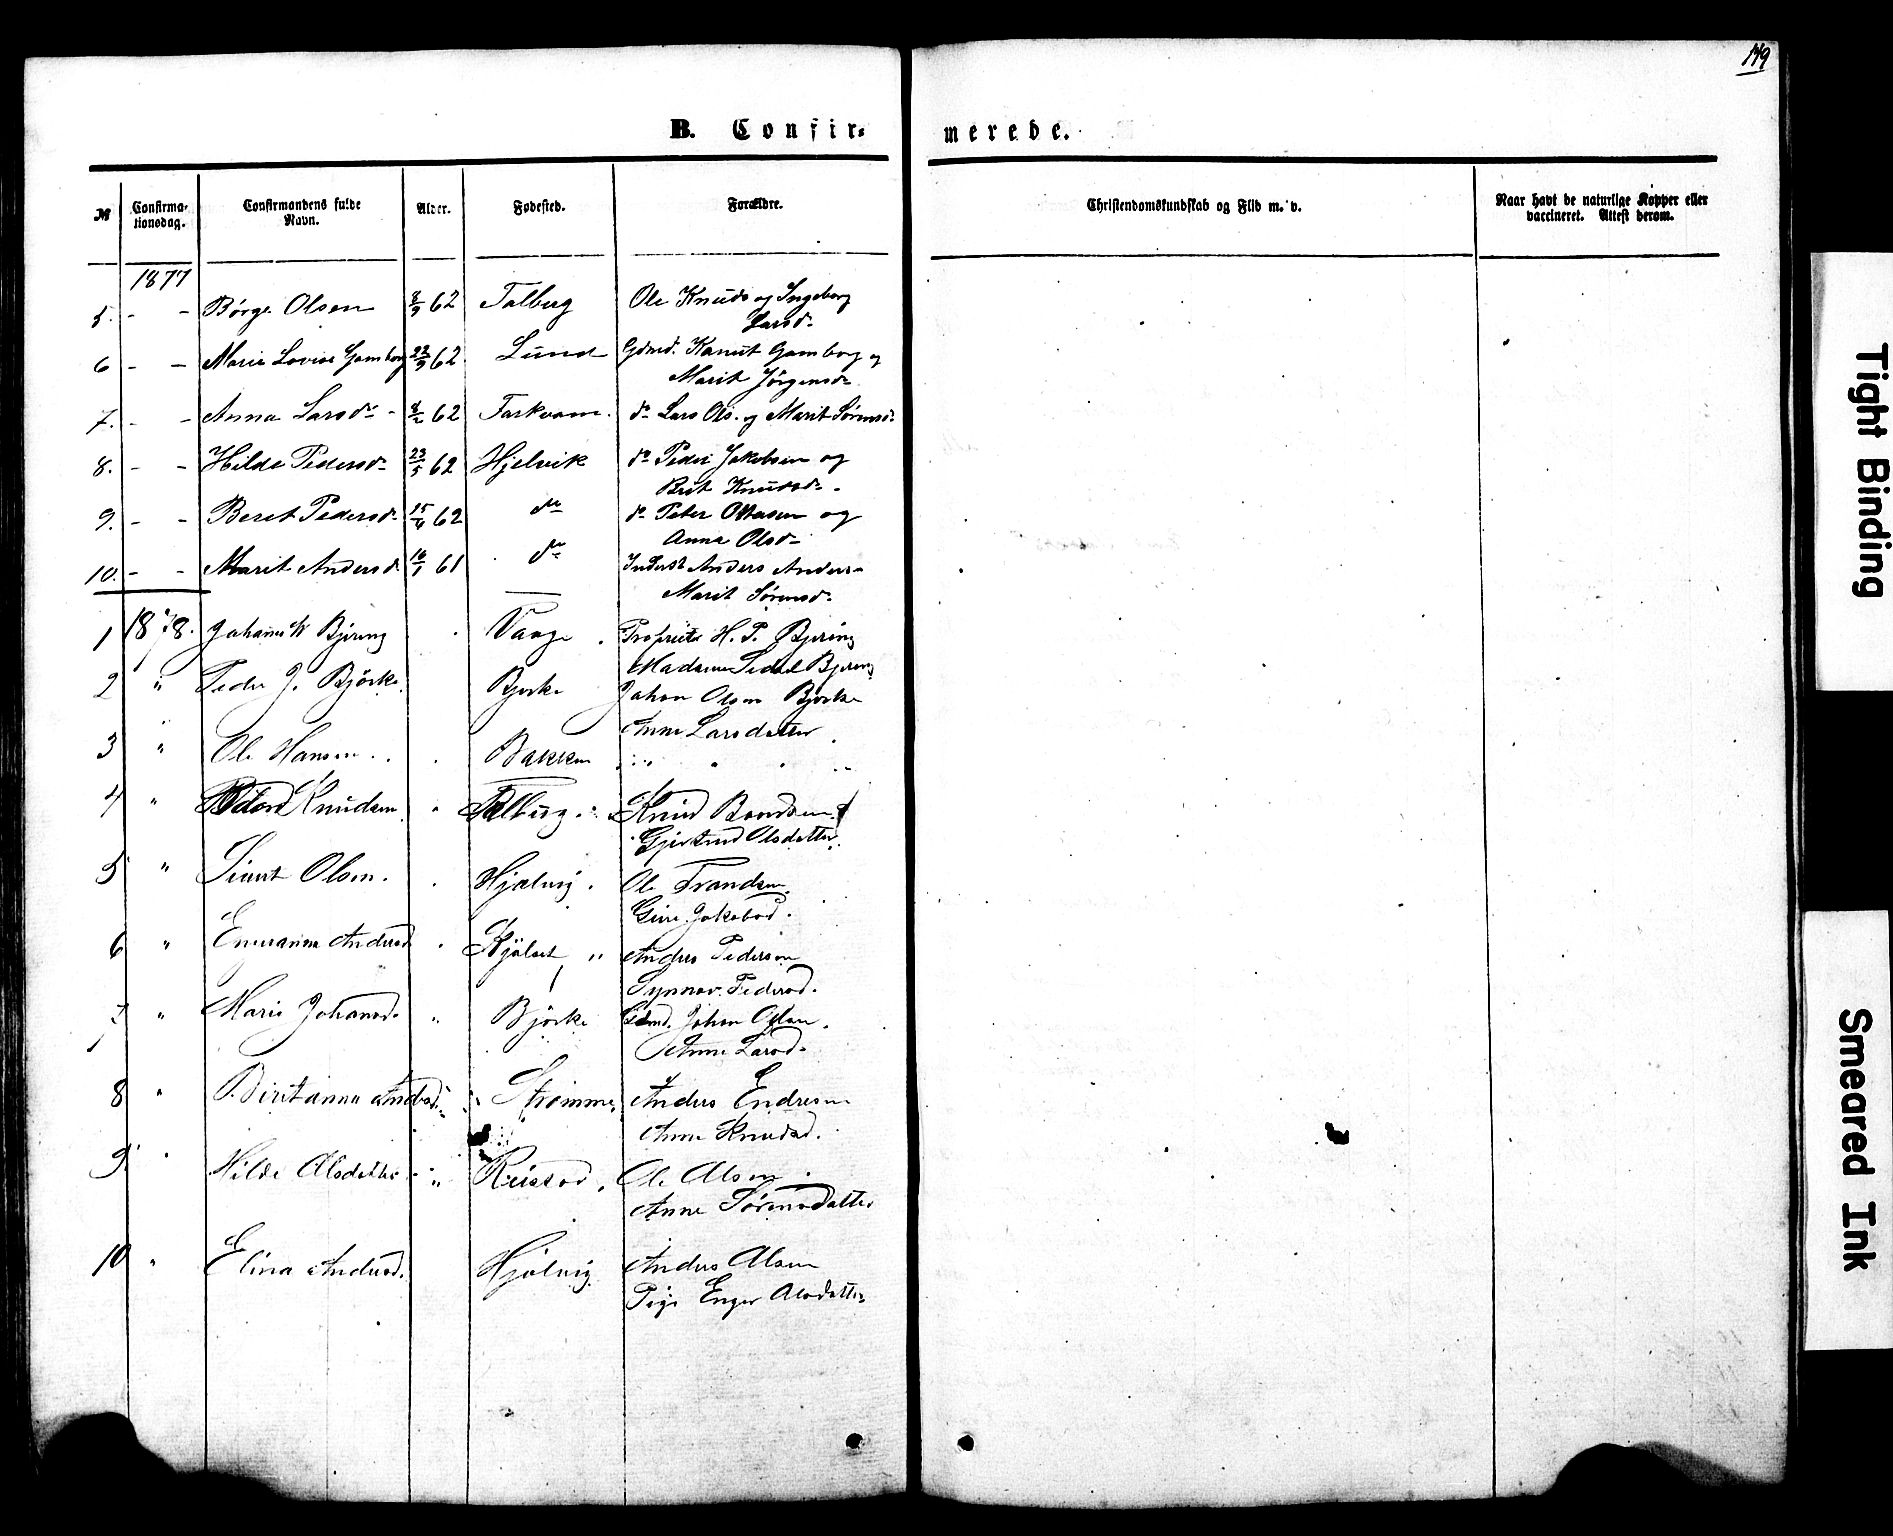 149
B. Confirmerede.
№ Confirmationsdag. Confirmandens fulde Navn. Alder. Fødested. Forældre. Christendomskundskab og Flid m. v. Naar havt de naturlige Kopper eller vaccineret. Attest derom.
1877
5. - - Børge Olsen 62 Talberg Ole Knuds og Ingeborg
Larsd.
6 - - Marie Lovise Gamborg 62. Lund Gdmd. Kanut Gamborg og
Marit Jørgensd.
7. - - Anna Larsd. - 62 Torkvam. do Lars Ols. og Marit Sørensd.
8. - - Hilde Pedersd. 23/5 62 Hjelvik do Peder Jakobsen og
Brit Knudsd.
9. - - Beret Pedersd. 15/4 62 do do Peter Ottesen og
Anna Olsd.
10. - - Marit Andersd. 16/1 61 do Inderst Anders Anders
Marit Sørensd.
1 1878. Johannes Bjering Vaage Propriet H. P. Bjering
Madame Bjering
2 " Peder J. Björke Bjorke Johan Olsen Bjorke
Anne Larsdatter
3 " Ole Hansen Bakken
4 " Knudsen " Talberg Knud
Gjertrud Olsdatter
5 " Sivert Olsen. Hjælvig. Ole Trandsen.
Jakobsd.
6 " Andersd. Anders Pedersen
Synnøv. Pedersd.
7 " Marie Johansd. " Björke Gdmd. Johan Olsen.
Anne Larsd.
8 " Beritanna Strømme Anders Endresen
Anne Knudsd.
9 Hilde Olsdatter " Reistad. Ole Olsen
Anne Sörensdatter
10 " Elina Andersd. Hjelvig Anders Olsen
Pige Enger Olsdatter
Tight Binding
Smeared Ink